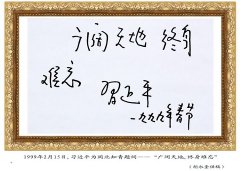 广阔天地 终身
难忘 习近平
一九九九年春节
1999年2月15日，习近平为闽北知青题词——“广阔天地，终身难忘”
供稿)